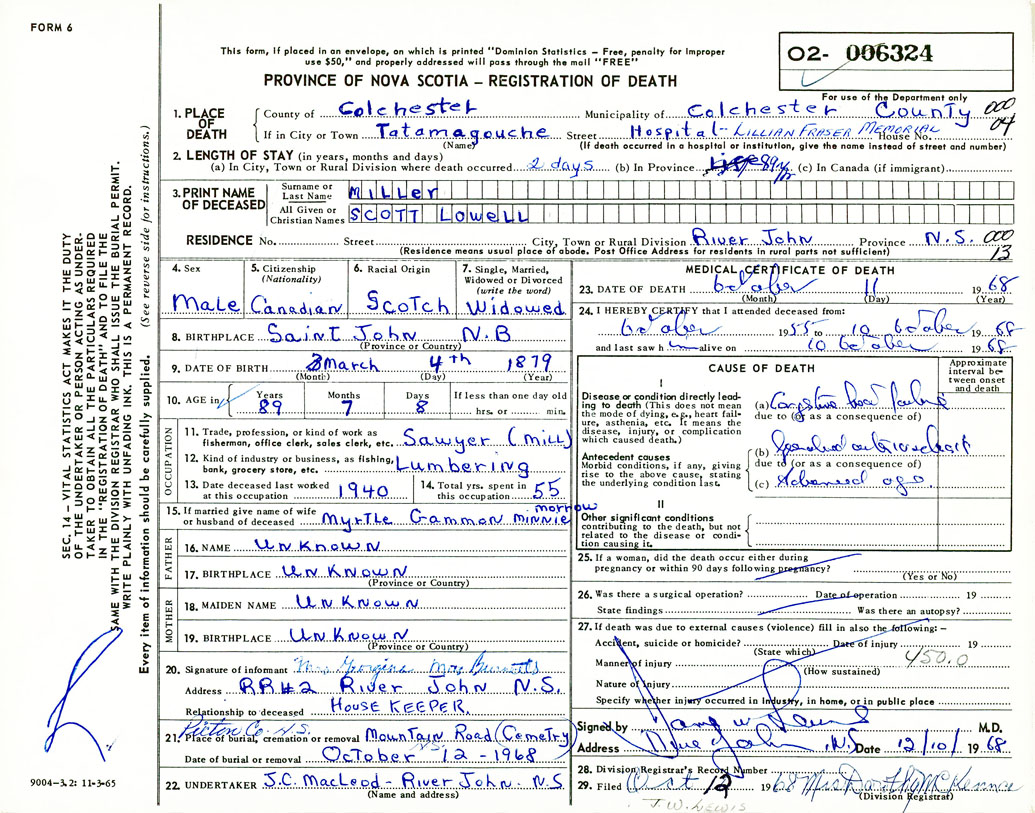 FORM 6
This form, if placed in an envelope, on which is printed "Dominion Statistics – Free, penalty for improper
use $50," and properly addressed will pass through the mail "FREE"
PROVINCE OF NOVA SCOTIA – REGISTRATION OF DEATH
02- 006324
For use of the Department only
1. PLACE OF DEATH
County of Colchester Municipality of Colchester County 000
If in City or Town Tatamagouche Street Hospital - Lillian Fraser Memorial House No. 04
(Name) (If death occurred in a hospital or institution, give the name instead of street and number)
2. LENGTH OF STAY (in years, months and days)
(a) In City, Town or Rural Division where death occurred 2 days (b) In Province 89 (c) In Canada (if immigrant)
3. PRINT NAME OF DECEASED
Surname or Last Name MILLER
All Given or Christian Names SCOTT LOWELL
RESIDENCE No. Street City, Town or Rural Division River John Province N.S. 000
(Residence means usual place of abode. Post Office Address for residents in rural parts not sufficient) 13
4. Sex Male
5. Citizenship (Nationality) Canadian
6. Racial Origin Scotch
7. Single, Married, Widowed or Divorced (write the word) Widowed
8. BIRTHPLACE Saint John N.B
(Province or Country)
9. DATE OF BIRTH March 4th 1879
(Month) (Day) (Year)
10. AGE in Years 89 Months 7 Days 8 If less than one day old hrs. or min.
OCCUPATION
11. Trade, profession, or kind of work as fisherman, office clerk, sales clerk, etc. Sawyer (Mill)
12. Kind of industry or business, as fishing, bank, grocery store, etc. Lumbering
13. Date deceased last worked at this occupation 1940
14. Total yrs. spent in this occupation 55
15. If married give name of wife or husband of deceased Myrtle Gammon Minnie morrow
FATHER
16. NAME UNKNOWN
17. BIRTHPLACE UNKNOWN
(Province or Country)
MOTHER
18. MAIDEN NAME UNKNOWN
19. BIRTHPLACE UNKNOWN
(Province or Country)
20. Signature of informant Mrs Georgina May
Address RR#2 River John N.S.
Relationship to deceased HOUSE KEEPER.
Pictou Co. N.S.
21. Place of burial, cremation or removal Mountain Road (Cemetry)
N.S.
Date of burial or removal October 12 - 1968
22. UNDERTAKER J.C. MacLeod - River John N.S
(Name and address)
MEDICAL CERTIFICATE OF DEATH
23. DATE OF DEATH October 11 1968
(Month) (Day) (Year)
24. I HEREBY CERTIFY that I attended deceased from:
October 1955 to 10 October 1968
and last saw h im alive on 10 October 1968
CAUSE OF DEATH
Approximate interval between onset and death
I
Disease or condition directly leading to death (This does not mean the mode of dying, e.g., heart failure, asthenia, etc. It means the disease, injury, or complication which caused death.)
(a) Congestive heart failure
due to (or as a consequence of)
Antecedent causes
Morbid conditions, if any, giving rise to the above cause, stating the underlying condition last.
(b)
due to (or as a consequence of)
(c) Advanced age
II
Other significant conditions contributing to the death, but not related to the disease or condition causing it.
25. If a woman, did the death occur either during pregnancy or within 90 days following pregnancy?
(Yes or No)
26. Was there a surgical operation? Date of operation 19
State findings Was there an autopsy?
27. If death was due to external causes (violence) fill in also the following: –
Accident, suicide or homicide? Date of injury 19
(State which) 450.0
Manner of injury
(How sustained)
Nature of injury
Specify whether injury occurred in Industry, in home, or in public place
Signed by M.D.
Address River John, N.S Date 12/10/ 1968
28. Division Registrar's Record Number
29. Filed Oct 12 1968 Miss Dorothy McKenna
(Division Registrar)
J.W. LEWIS
SEC. 14 – VITAL STATISTICS ACT MAKES IT THE DUTY
OF THE UNDERTAKER OR PERSON ACTING AS UNDER-
TAKER TO OBTAIN ALL THE PARTICULARS REQUIRED
IN THE "REGISTRATION OF DEATH" AND TO FILE THE
SAME WITH THE DIVISION REGISTRAR WHO SHALL ISSUE THE BURIAL PERMIT.
WRITE PLAINLY WITH UNFADING INK. THIS IS A PERMANENT RECORD.
Every item of information should be carefully supplied. (See reverse side for instructions.)
9004–3.2: 11-3-65